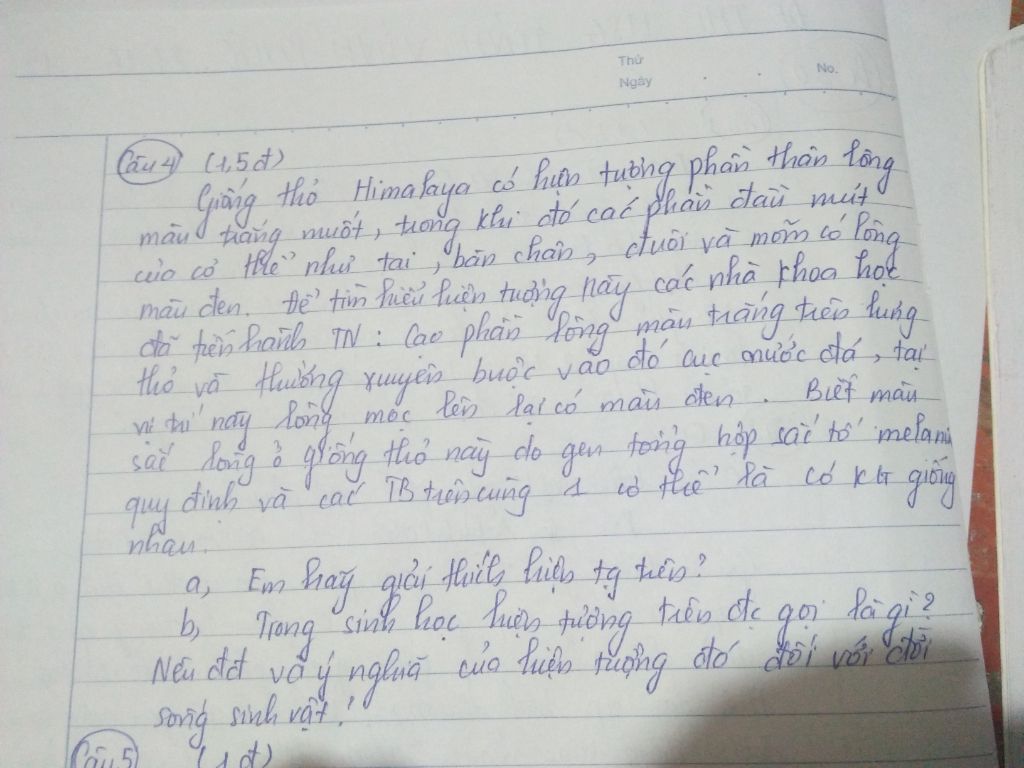 Thứ
Ngày
No.
Câu 4 (1,5đ)
Giống thỏ Himalaya có hiện tượng phần thân lông
màu trắng muốt, trong khi đó các phần đầu mút
của cơ thể như tai, bàn chân, đuôi và mõm có lông
màu đen. Để tìm hiểu hiện tượng này các nhà khoa học
đã tiến hành TN : Cạo phần lông màu trắng trên lưng
thỏ và thường xuyên buộc vào đó cục nước đá, tại
vị trí này lông mọc lên lại có màu đen. Biết màu
sắc lông ở giống thỏ này do gen tổng hợp sắc tố melani
quy định và các TB trên cùng 1 cơ thể là có KG giống
nhau.
a, Em hãy giải thích hiện tg trên?
b, Trong sinh học hiện tượng trên đc gọi là gì?
Nêu đđ và ý nghĩa của hiện tượng đó đối với đời
sống sinh vật!
Câu 5 (1đ)